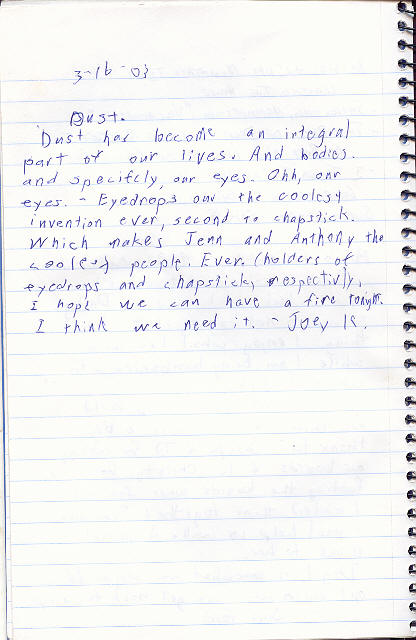 3-16-03
Dust.
Dust has become an integral
part of our lives. And bodies.
and specifcly, our eyes. Ohh, our
eyes. - Eyedrops our the coolest
invention ever, second to chapstick.
Which makes Jenn and Anthony the
coolest people. Ever. (holders of
eyedrops and chapstick, respectivly,
I hope we can have a fire tonight.
I think we need it. - Joey K.